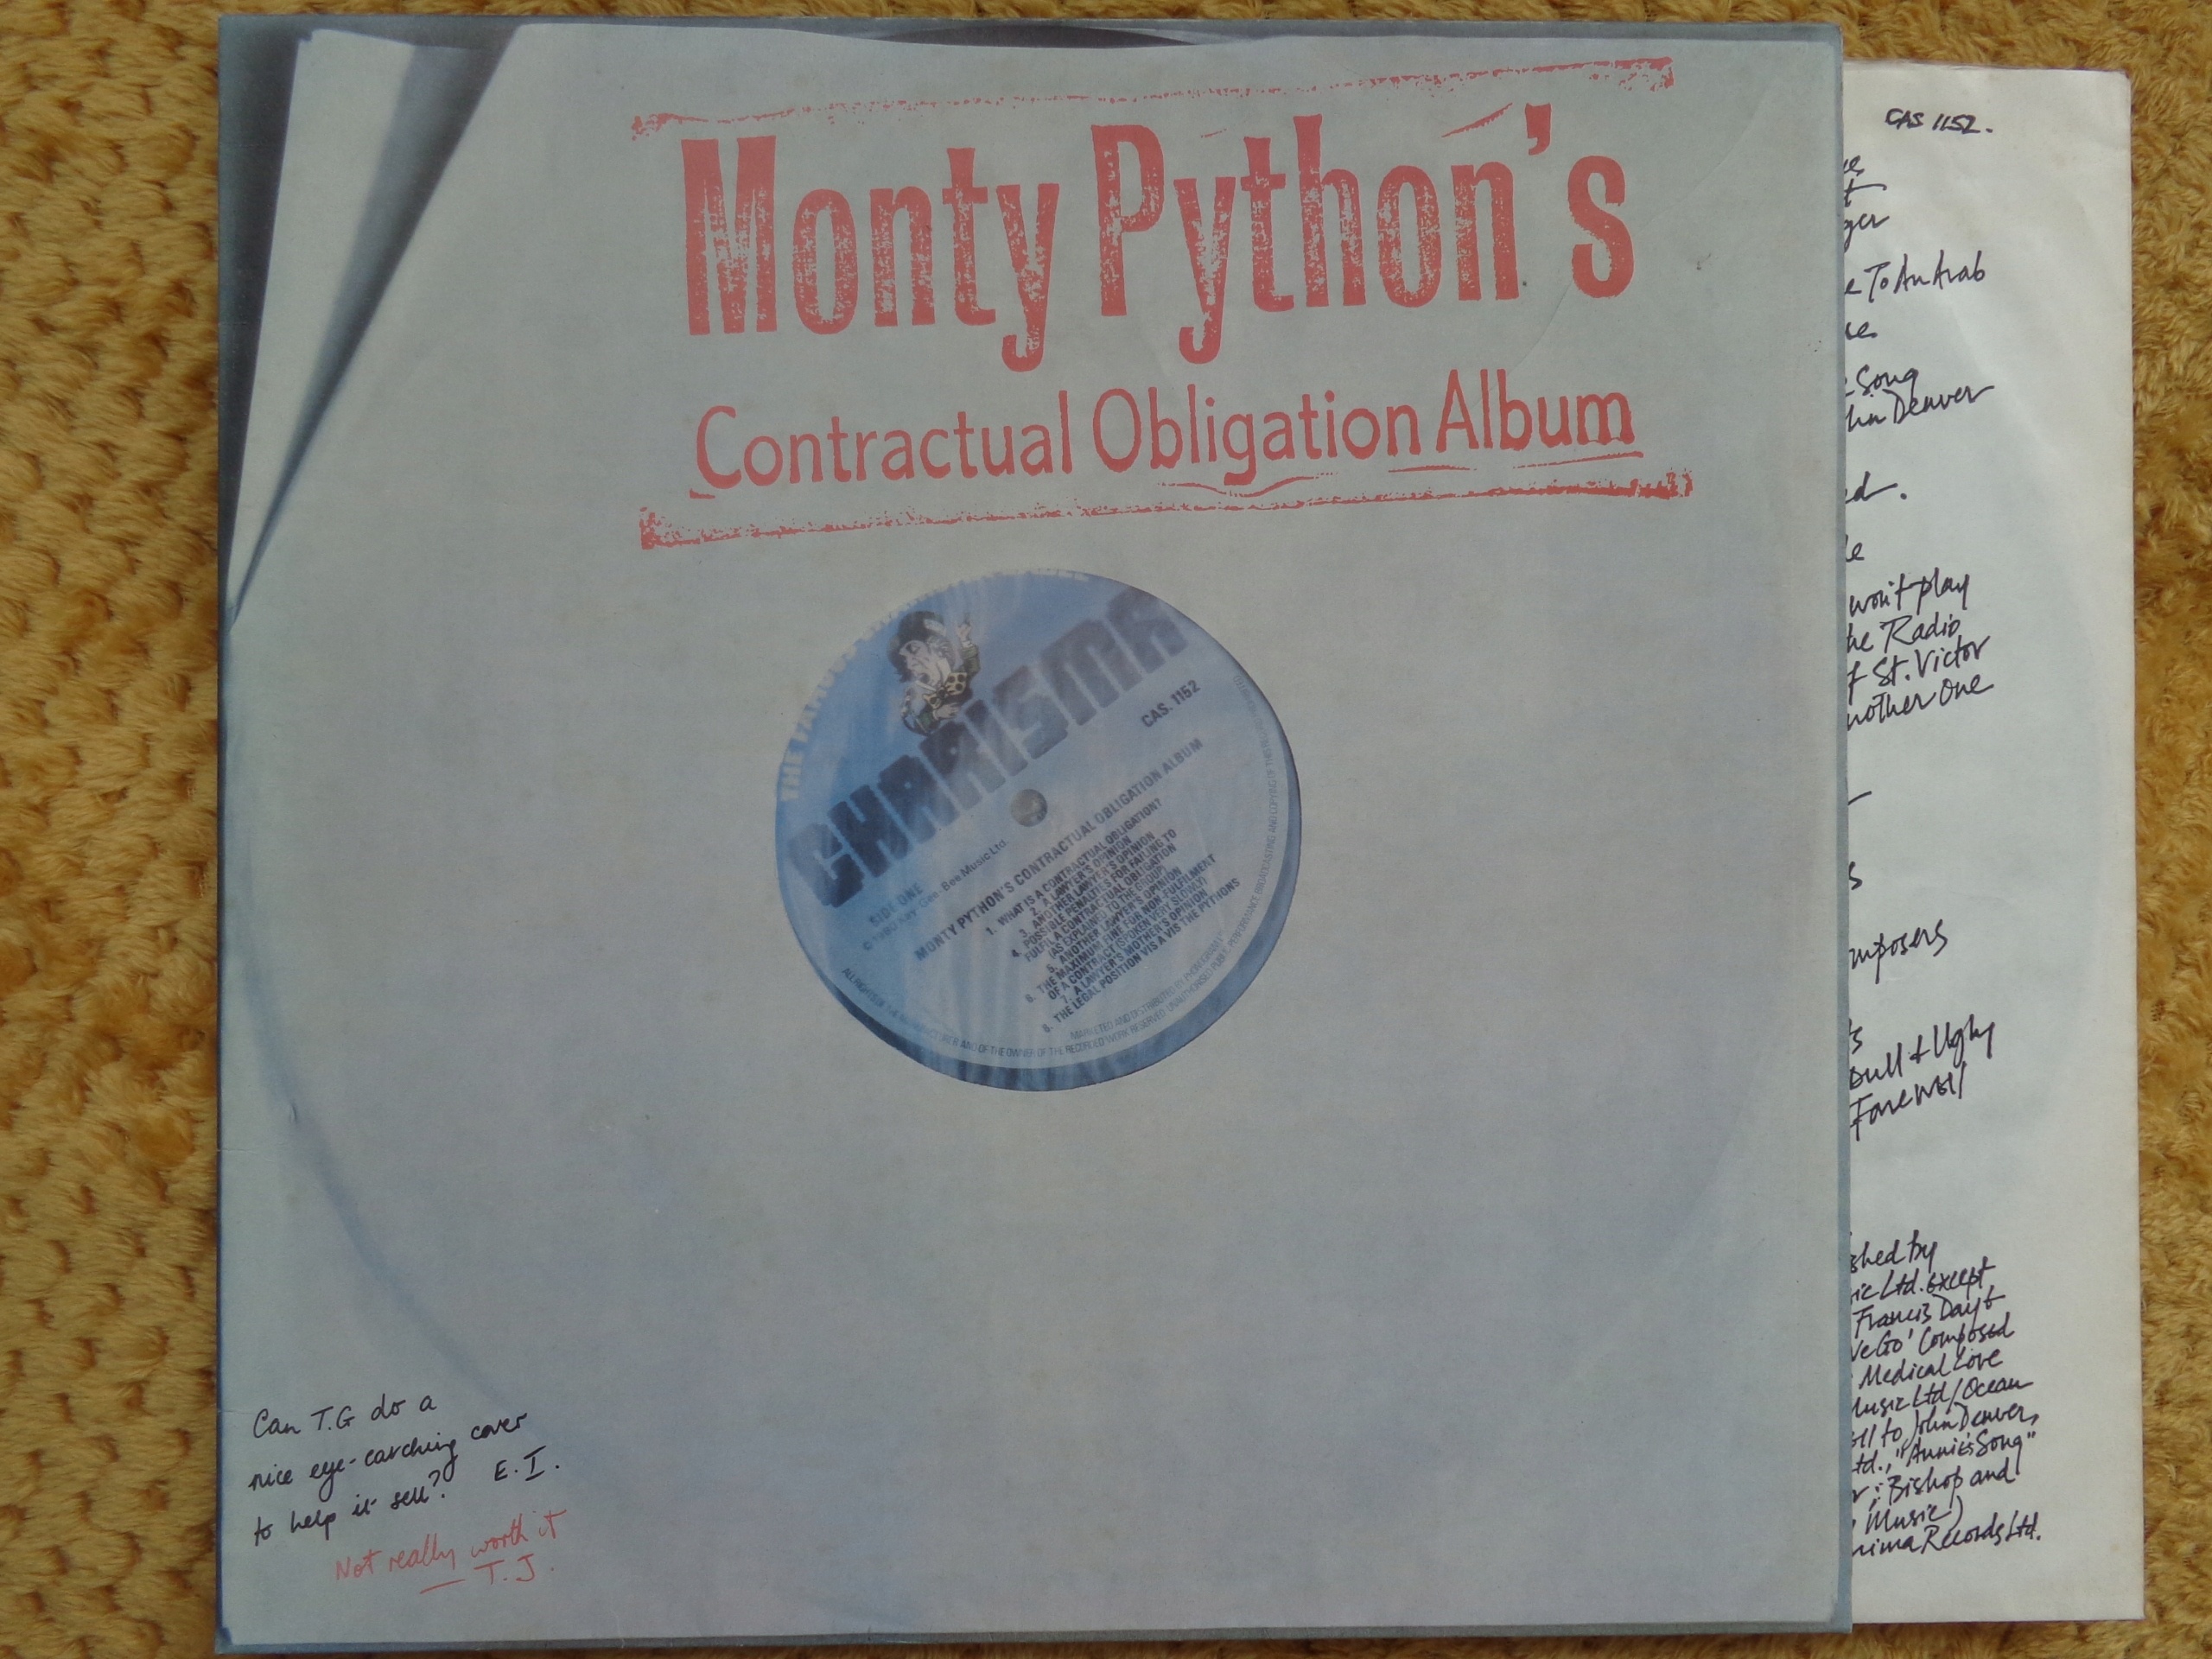 Monty Python's
Contractual Obligation Album
CHARISMA
CAS. 1152
SIDE ONE
Kay-Gee-Bee Music Ltd.
MONTY PYTHON'S CONTRACTUAL OBLIGATION ALBUM
1. WHAT IS A CONTRACTUAL OBLIGATION?
2. A LAWYER'S OPINION
3. ANOTHER LAWYER'S OPINION
4. POSSIBLE PENALTIES FOR FAILING TO
FULFIL A CONTRACTUAL OBLIGATION
(AS EXPLAINED TO THE GROUP)
5. ANOTHER LAWYER'S OPINION
6. THE MAXIMUM FINE FOR NON-FULFILMENT
OF A CONTRACT (SPOKEN VERY SLOWLY)
7. A LAWYER'S MOTHER'S OPINION
8. THE LEGAL POSITION VIS A VIS THE PYTHONS
MARKETED AND DISTRIBUTED BY PHONOGRAM
Can T.G do a
nice eye-catching cover
to help it sell? E.I.
Not really worth it
T.J.
CAS 1152.
To An Arab
Song
Denver
won't play
the Radio
St. Victor
Another One
mposers
Dull & Ugly
Farewell
shed by
Ltd. except
Francis Day &
Go' Composed
Medical Love
Music Ltd/Ocean
to John Denver,
Ltd., "Annie's Song"
Bishop and
Music)
Records Ltd.